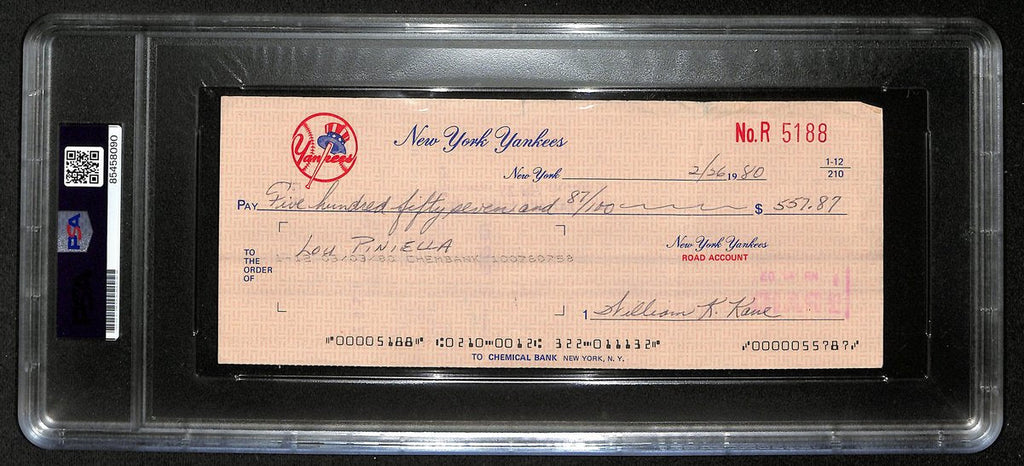 PSA
85458090
Yankees
New York Yankees
No.R 5188
New York 2/26 1980
1-12
210
PAY Five hundred fifty seven and 87/100 $ 557.87
TO
THE
ORDER
OF
LOU PINIELLA
03/03/80 CHEMBANK 100280758
New York Yankees
ROAD ACCOUNT
1 William K. Kane
⑈00005188⑈ ⑆0210⑉0012⑆ 322⑉011132⑈ ⑇0000055787⑇
TO CHEMICAL BANK NEW YORK, N. Y.